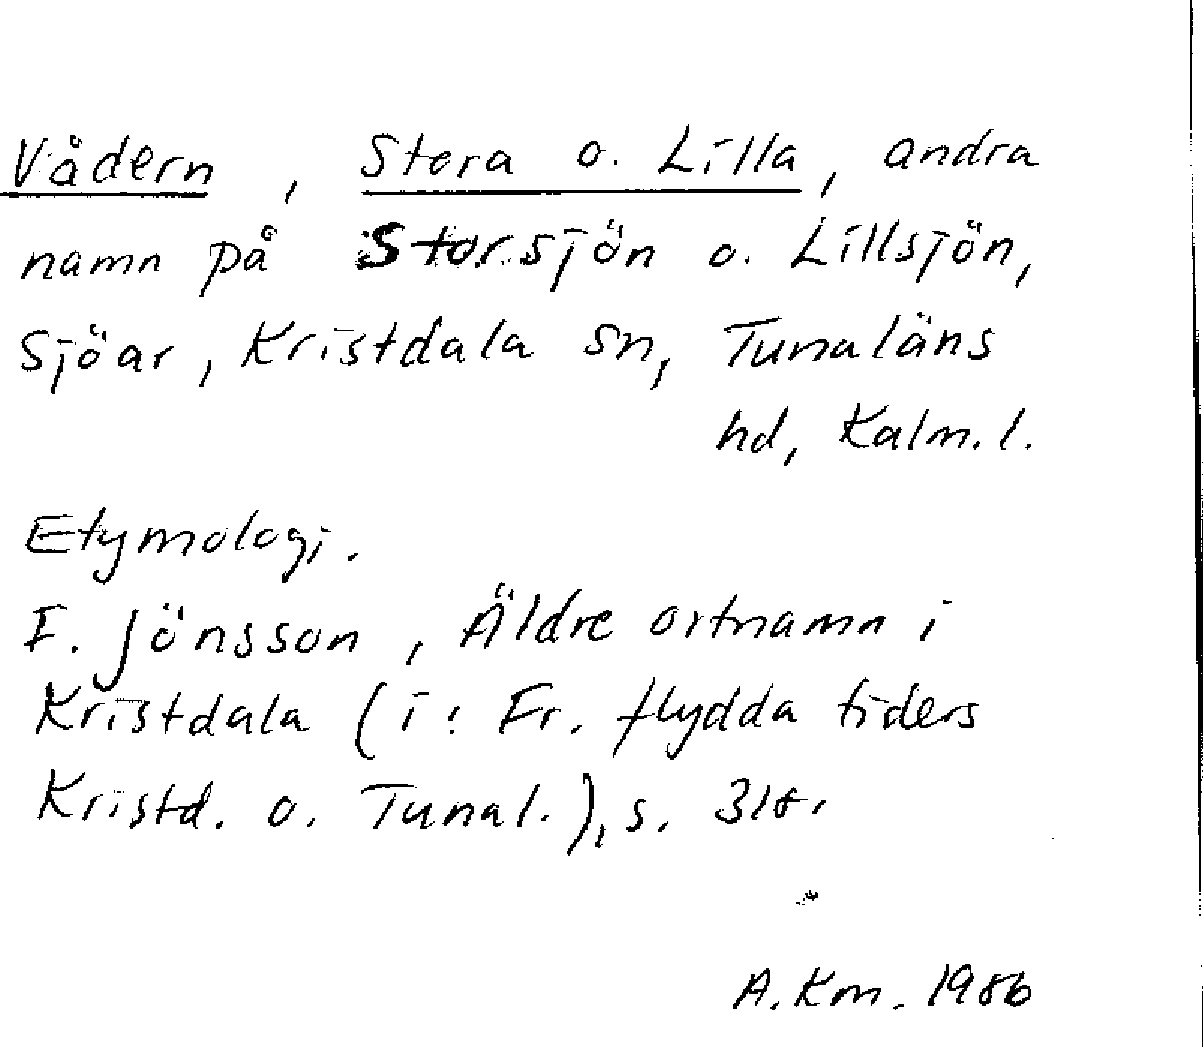 Vådern, Stora o. Lilla, andra
namn på Storsjön o. Lillsjön,
Sjöar, Kristdala sn, Tunaläns
hd, Kalm. l.
Etymologi.
F. Jönsson, Äldre ortnamn i
Kristdala (i: Fr. flydda tiders
Kristd. o. Tunal.), s. 318.
A. Km. 1986